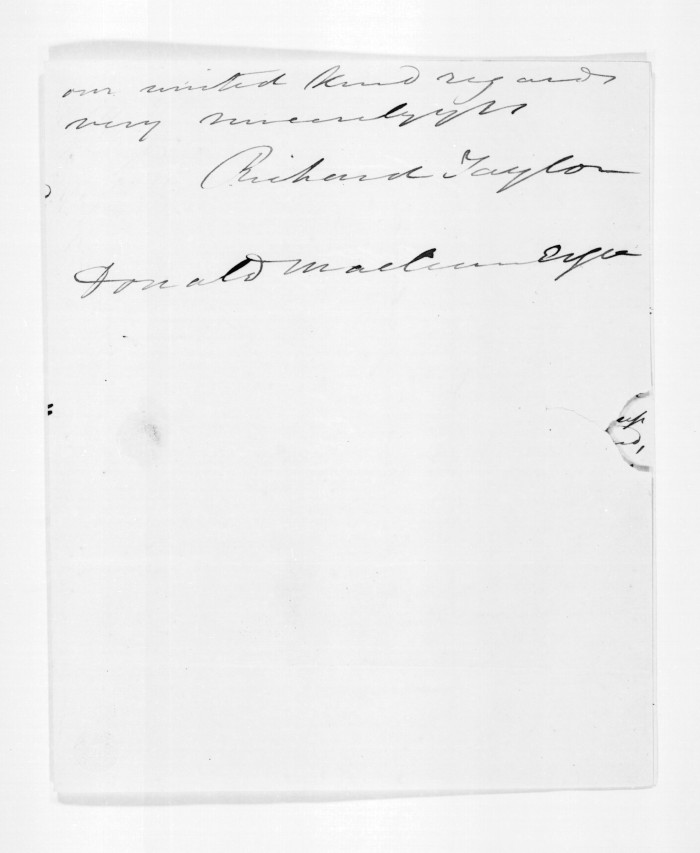 our united kind regards
very sincerely yrs
Richard Taylor
Donald Maclean Esqre